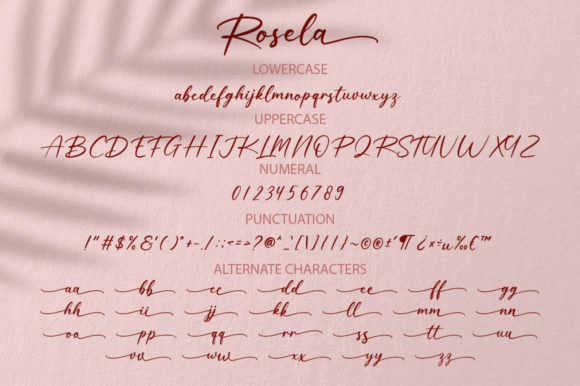 Rosela
LOWERCASE
abcdefghijklmnopqrstuvwxyz
UPPERCASE
ABCDEFGHIJKLMNOPQRSTUVWXYZ
NUMERAL
0123456789
PUNCTUATION
!"#$%&'()*+-./:;<=>?@^_`[\]{|}~©®±'¶¿×÷µ‰€™
ALTERNATE CHARACTERS
aa bb cc dd ee ff gg
hh ii jj kk ll mm nn
oo pp qq rr ss tt uu
vv ww xx yy zz